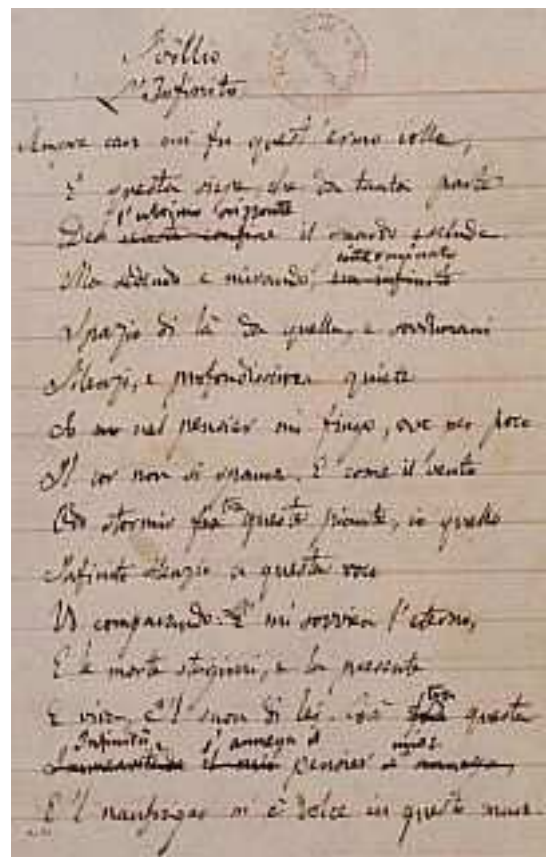 Idillio
L'Infinito
Sempre caro mi fu quest'ermo colle,
E questa siepe, che da tanta parte
l'ultimo orizzonte
Del il guardo esclude.
interminato
Ma sedendo e mirando, un infinito
Spazio di là da quella, e sovrumani
Silenzi, e profondissima quiete
Io nel pensier mi fingo, ove per poco
Il cor non si spaura. E come il vento
Odo stormir fra tra queste piante, io quello
Infinito silenzio a questa voce
Vo comparando: E mi sovvien l'eterno,
E le morte stagioni, e la presente
E viva, e 'l suon di lei. Così
tra
questa
Infinità s'annega il mio
pensier s'annega,
E 'l naufragar m'è dolce in questo mare.